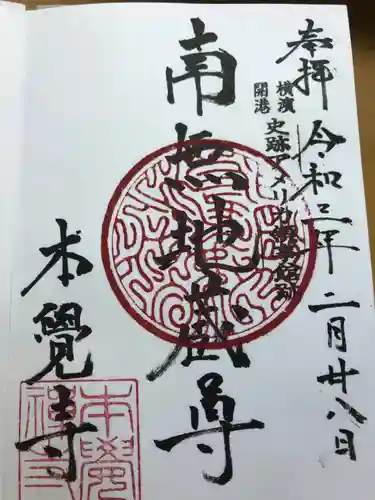 奉拝
令和三年二月廿八日
横濱
開港
史跡アメリカ領事館跡
南無地蔵尊
本覺寺